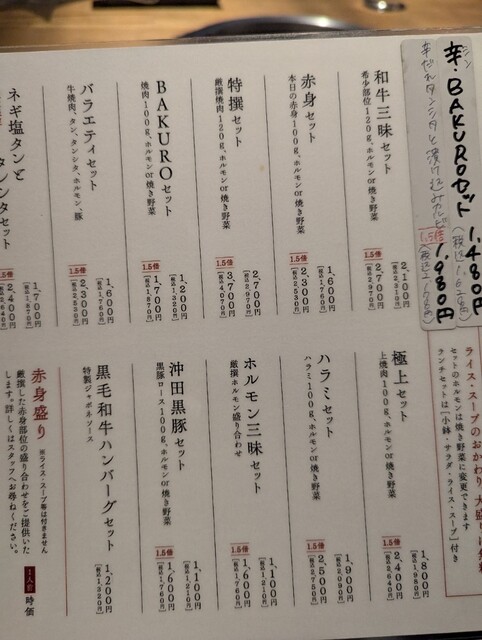 辛・BAKUROセット 1,480円
辛だれタンシタと漬け込みカルビ
1.5倍 1,980円
ライス・スープのおかわり、大盛りは無料
セットのホルモンは焼き野菜に変更できます
ランチセットは「小鉢・サラダ・ライス・スープ」付き
和牛三昧セット
希少部位120g、ホルモンor焼き野菜
2,100円
[税込2,310円]
1.5倍
2,700円
[税込2,970円]
赤身セット
本日の赤身100g、ホルモンor焼き野菜
1,600円
[税込1,760円]
1.5倍
2,300円
[税込2,530円]
特撰セット
厳撰焼肉120g、ホルモンor焼き野菜
2,700円
[税込2,970円]
1.5倍
3,700円
[税込4,070円]
BAKUROセット
焼肉100g、ホルモンor焼き野菜
1,200円
[税込1,320円]
1.5倍
1,700円
[税込1,870円]
バラエティセット
牛焼肉、タン、タンシタ、ホルモン、豚
1,600円
[税込1,760円]
1.5倍
2,300円
[税込2,530円]
ネギ塩タンと
タンシタセット
1,700円
[税込1,870円]
1.5倍
2,400円
[税込2,640円]
極上セット
上焼肉100g、ホルモンor焼き野菜
1,800円
[税込1,980円]
1.5倍
2,400円
[税込2,640円]
ハラミセット
ハラミ100g、ホルモンor焼き野菜
1,900円
[税込2,090円]
1.5倍
2,500円
[税込2,750円]
ホルモン三昧セット
厳撰ホルモン盛り合わせ
1,100円
[税込1,210円]
1.5倍
1,600円
[税込1,760円]
沖田黒豚セット
黒豚ロース100g、ホルモンor焼き野菜
1,100円
[税込1,210円]
1.5倍
1,600円
[税込1,760円]
黒毛和牛ハンバーグセット
特製ジャポネソース
1,200円
[税込1,320円]
赤身盛り ※ライス・スープ等は付きません
厳撰した赤身部位の盛り合わせをご提供いた
します。詳しくはスタッフへお尋ねください。
1人前 時価